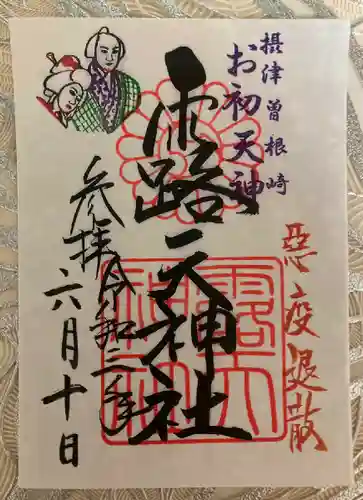 摂津曽根崎
お初天神
悪疫退散
露天神社
参拝
令和三年
六月十日